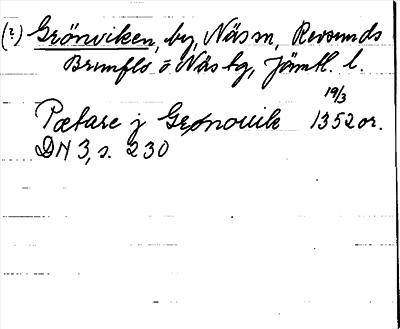 (?) Grönviken, by, Näs sn, Revsunds
Brunflo o Näs tg, Jämtl. l.
19/3
Pætare j Grønouik 1352 or.
DN 3, s. 230